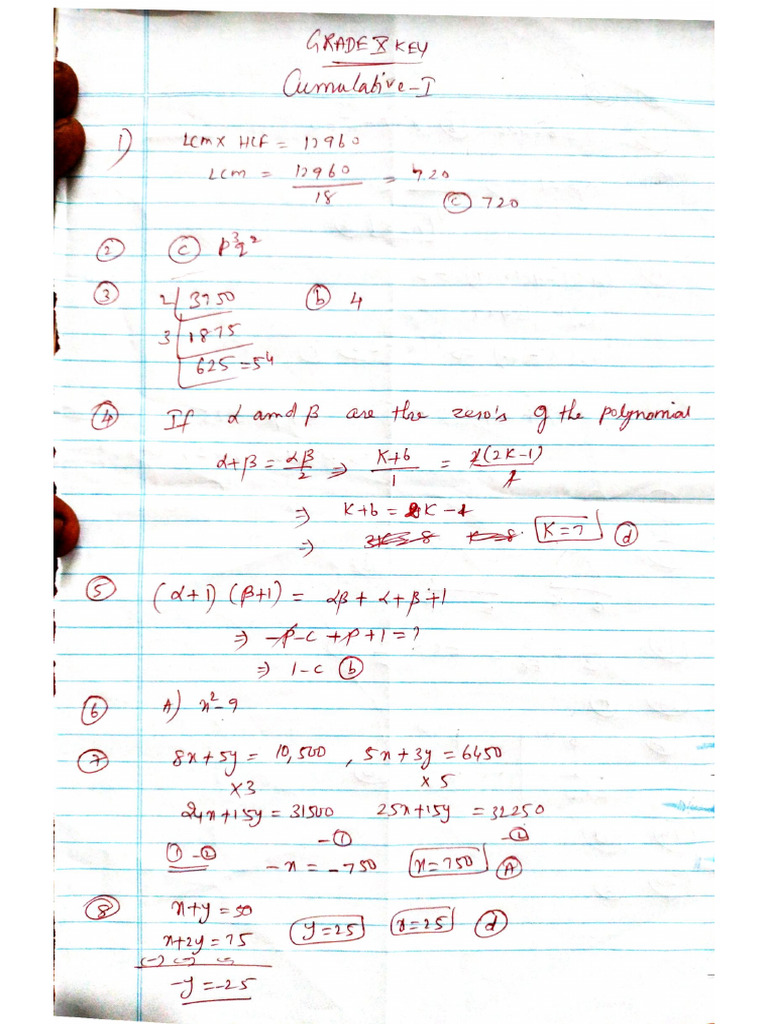 GRADE X KEY
Cumulative-I
1) LCM X HCF = 12960
LCM = 12960/18 = 720
(c) 720
(2) (c) p³q²
(3) 2 | 3750 (b) 4
3 | 1875
625 = 5⁴
(4) If α and β are the zero's of the polynomial
α+β = αβ/2 ⇒ K+6/1 = 2(2K-1)/2
⇒ K+6 = 2K-1
⇒ K=7 (d)
(5) (α+1) (β+1) = αβ + α + β + 1
⇒ -p-c +p+1=?
⇒ 1-c (b)
(6) A) x²-9
(7) 8x+5y = 10,500 , 5x+3y = 6450
x3 x5
24x+15y = 31500 25x+15y = 32250
-① -②
①-② -x = -750 x=750 (A)
(8) x+y = 50 y=25 x=25 (d)
x+2y = 75
(-) (-) (-)
-y = -25